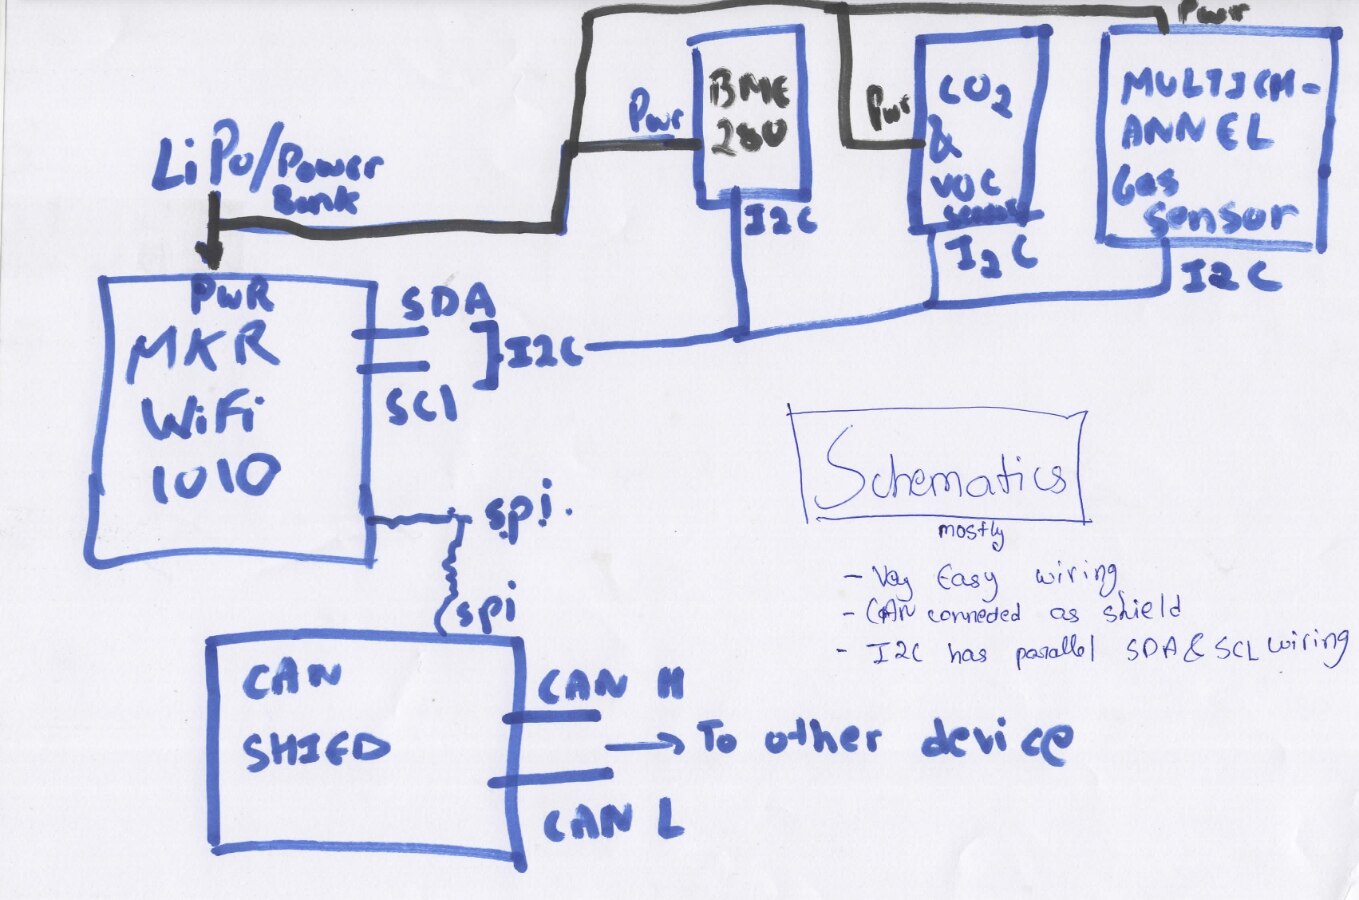 Pwr
BME
280
Pwr
I2C
CO2
&
VOC
sensor
Pwr
I2C
MULTICH-
ANNEL
Gas
Sensor
I2C
LiPo/Power
Bank
PWR
MKR
WiFi
1010
SDA
I2C
SCl
spi.
spi
CAN
SHIED
CAN H
To other device
CAN L
Schematics
mostly
- Vey Easy wiring
- CAN connected as shield
- I2C has parallel SDA & SCL wiring